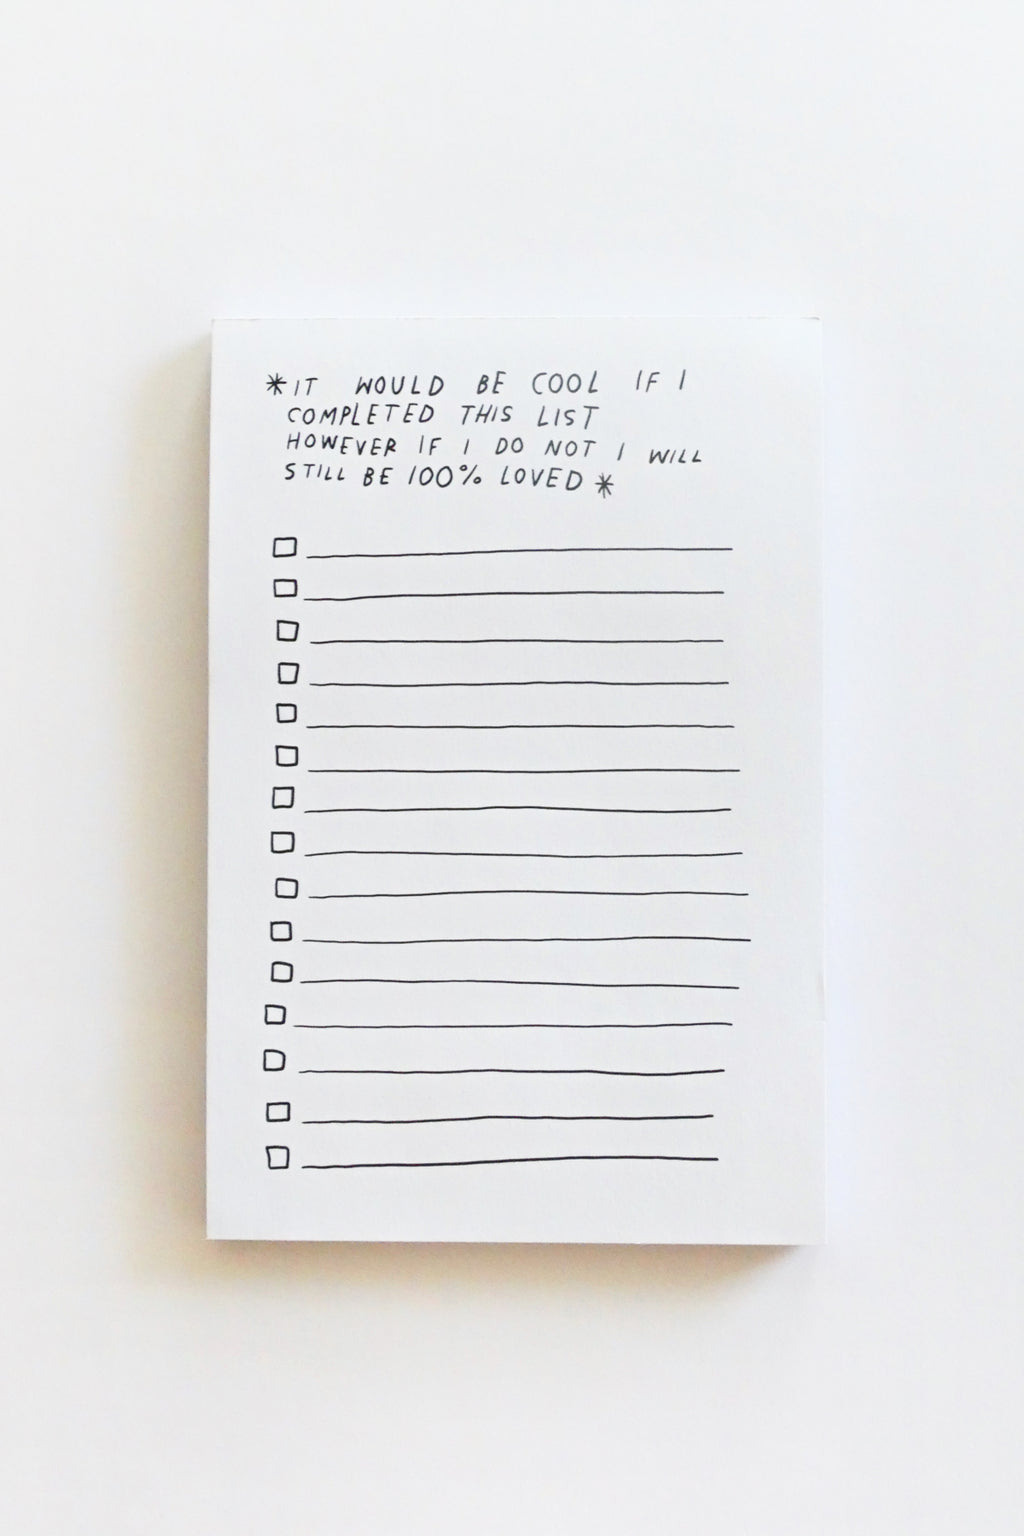 *IT WOULD BE COOL IF I
COMPLETED THIS LIST
HOWEVER IF I DO NOT I WILL
STILL BE 100% LOVED*